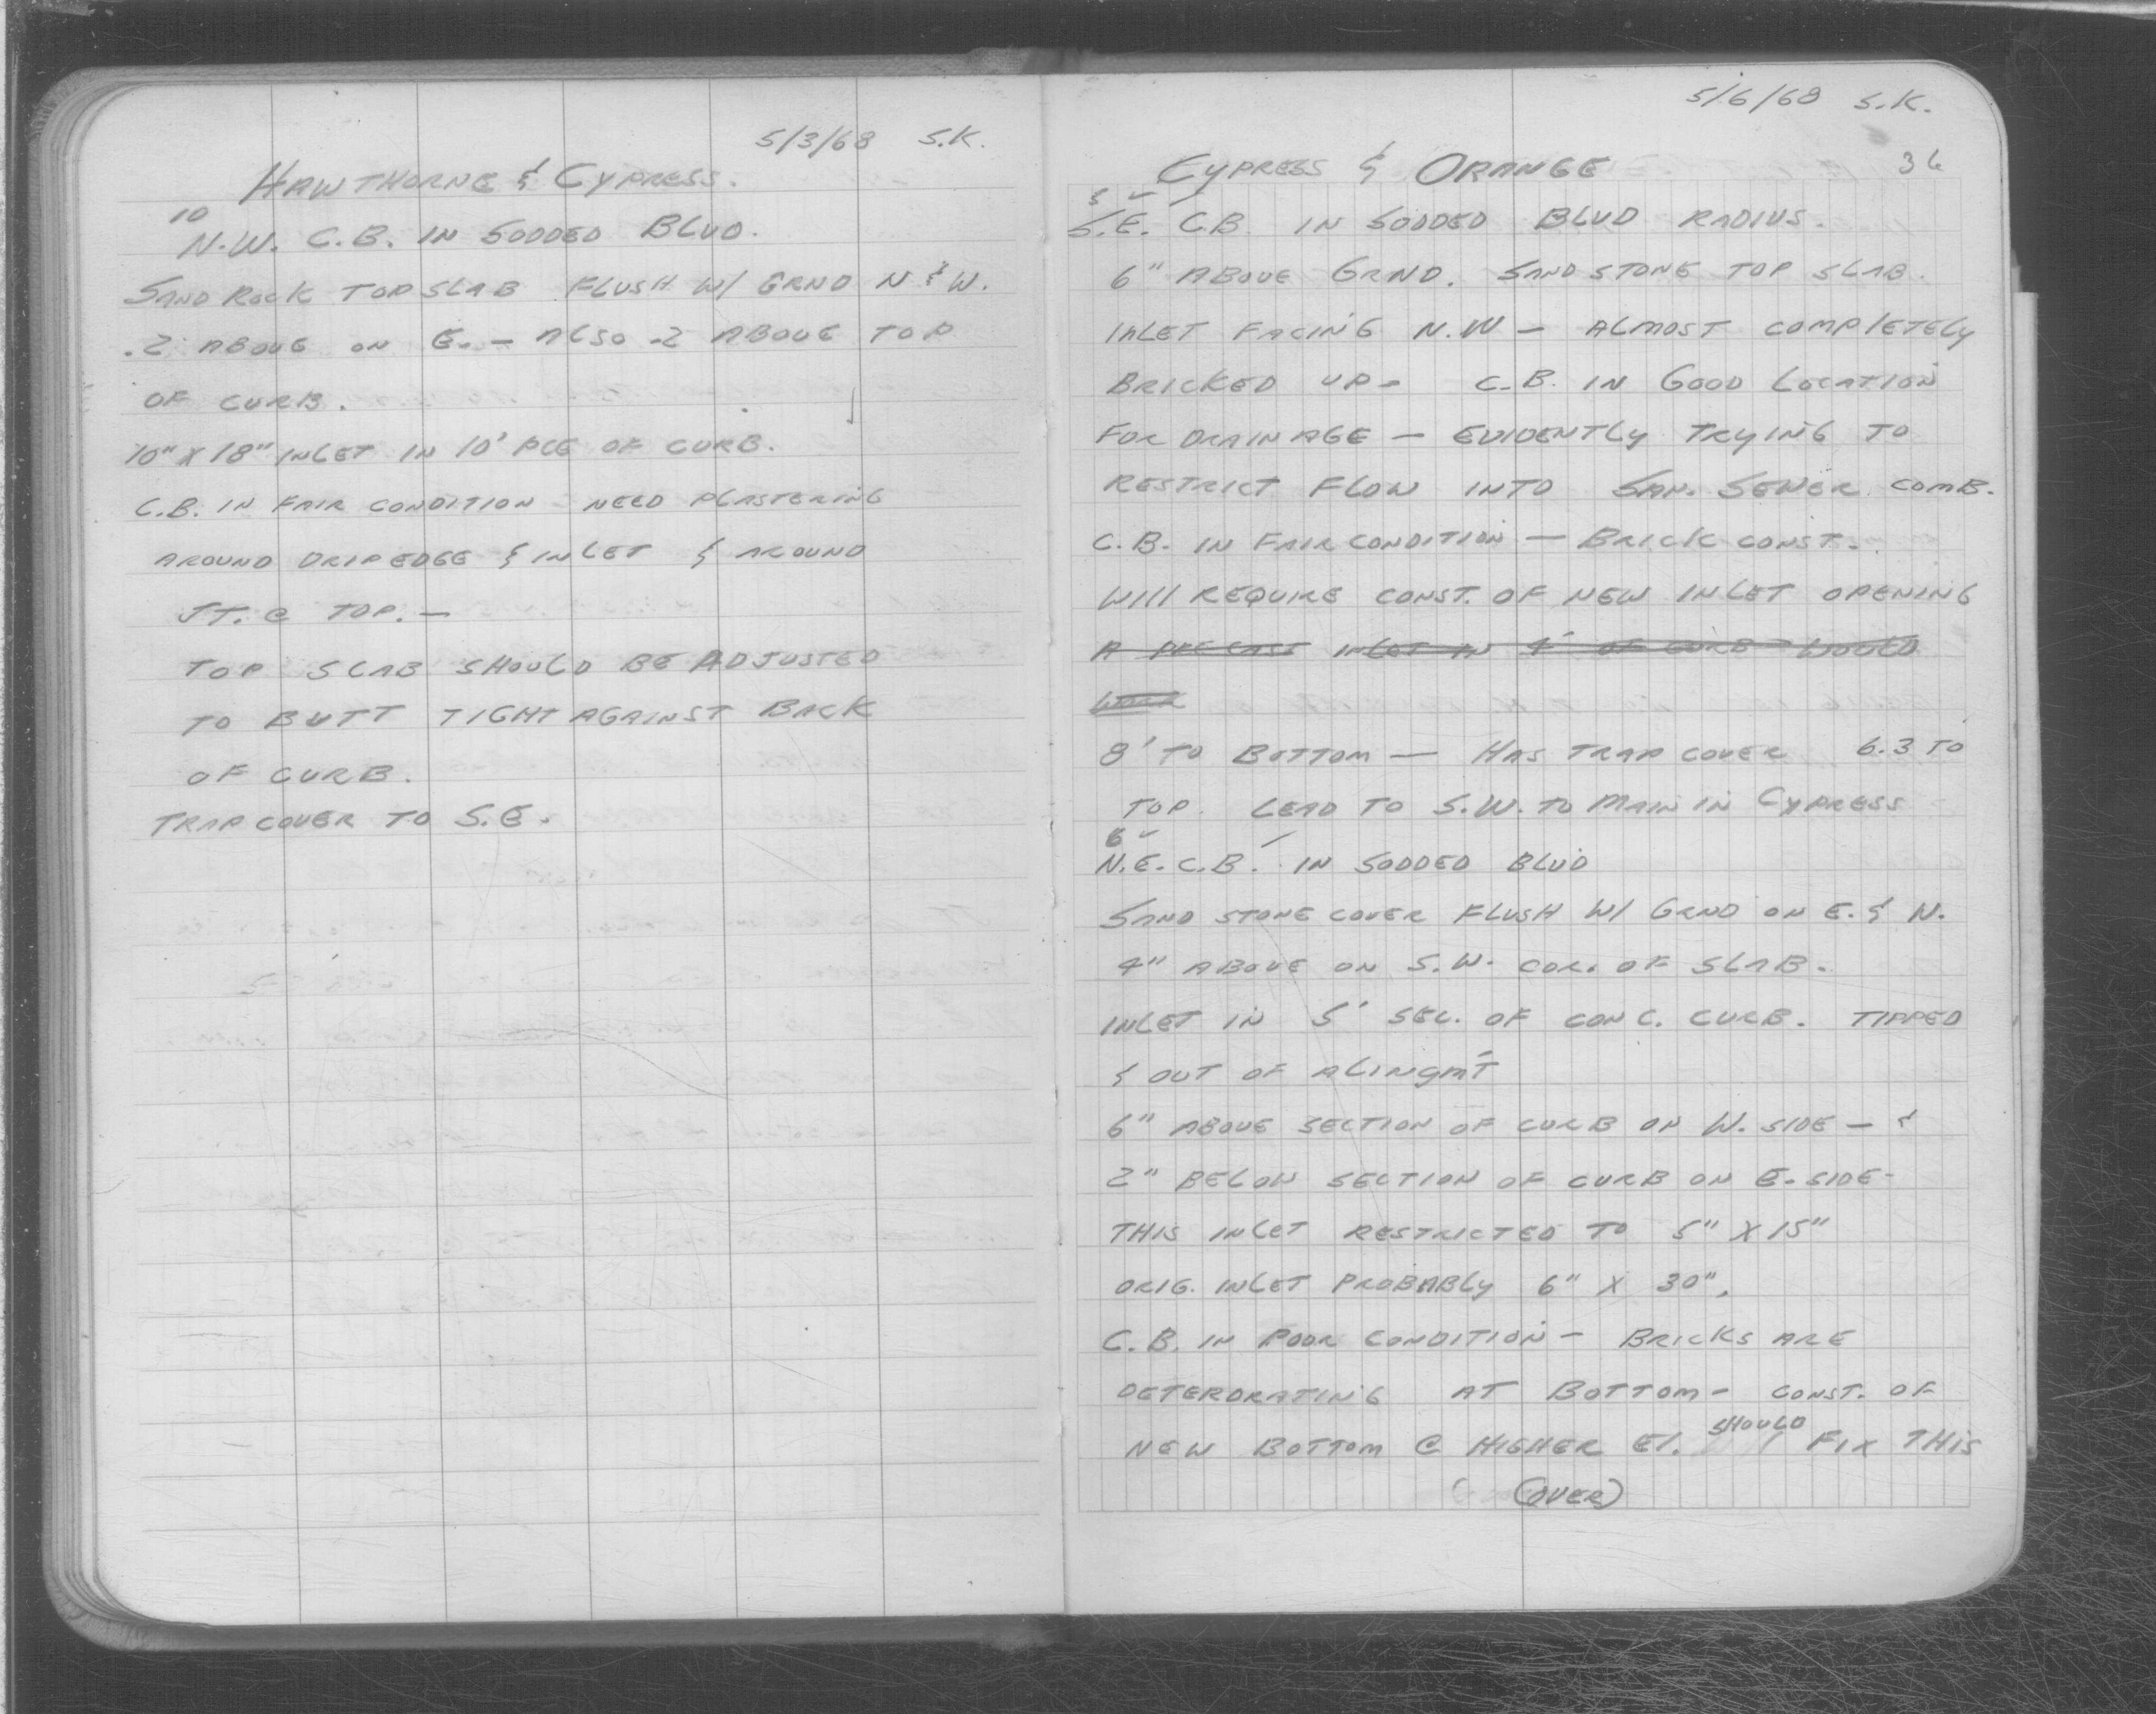 5/3/68 S.K.
HAWTHORNE & CYPRESS.
10
N.W. C.B. IN SODDED BLVD.
SAND ROCK TOP SLAB FLUSH W/ GRND N & W.
.2 ABOVE ON E. — ALSO .2 ABOVE TOP
OF CURB.
10" X 18" INLET IN 10' PCE OF CURB.
C.B. IN FAIR CONDITION NEED PLASTERING
AROUND DRIP EDGE & INLET & AROUND
JT. @ TOP. —
TOP SLAB SHOULD BE ADJUSTED
TO BUTT TIGHT AGAINST BACK
OF CURB.
TRAP COVER TO S.E.
5/6/68 S.K.
36
CYPRESS & ORANGE
S.E. C.B. IN SODDED BLVD RADIUS.
6" ABOVE GRND. SANDSTONE TOP SLAB.
INLET FACING N.W — ALMOST COMPLETELY
BRICKED UP - C.B. IN GOOD LOCATION
FOR DRAINAGE — EVIDENTLY TRYING TO
RESTRICT FLOW INTO SAN. SEWER COMB.
C.B. IN FAIR CONDITION — BRICK CONST.
WILL REQUIRE CONST. OF NEW INLET OPENING
A PRECAST INLET IN 4' OF CURB WOULD
WORK
8' TO BOTTOM — HAS TRAP COVER 6.3 TO
TOP. LEAD TO S.W. TO MAIN IN CYPRESS
6
N.E. C.B. IN SODDED BLVD
SAND STONE COVER FLUSH W/ GRND ON E. & N.
4" ABOVE ON S.W. COR. OF SLAB.
INLET IN 5' SEC. OF CONC. CURB. TIPPED
& OUT OF ALINGMT
6" ABOVE SECTION OF CURB ON W. SIDE — &
2" BELOW SECTION OF CURB ON E. SIDE -
THIS INLET RESTRICTED TO 5" X 15"
ORIG. INLET PROBABLY 6" X 30".
C.B. IN POOR CONDITION — BRICKS ARE
DETERORATING AT BOTTOM - CONST. OF
NEW BOTTOM @ HIGHER El. SHOULD FIX THIS
(OVER)